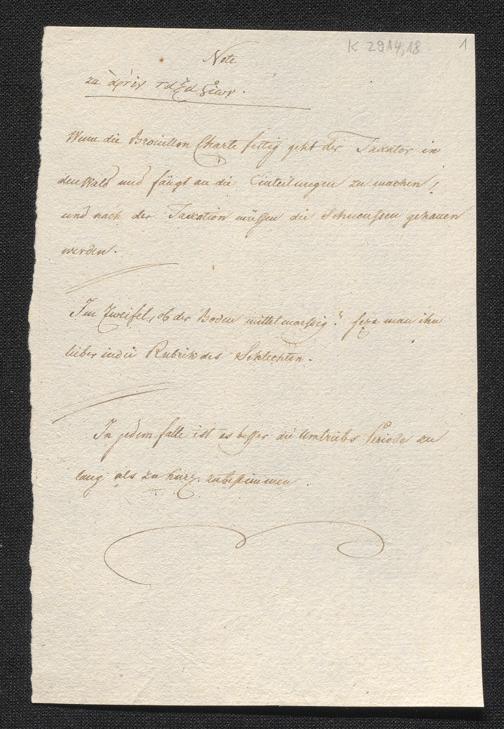 K 2914,18
1
Note
zu
Wenn die Brouillon Charte fertig geht der Taxator in
den Wald und fängt an die Einteilungen zu machen,
und nach der Taxation müssen die Schneussen gehauen
werden.
Im Zweifel, ob der Boden mittelmaessig? seze man ihn
lieber in die Rubrik des Schlechten.
In jedem falle ist es besser die Umtriebs Periode zu
lang als zu kurz zu bestimmen.